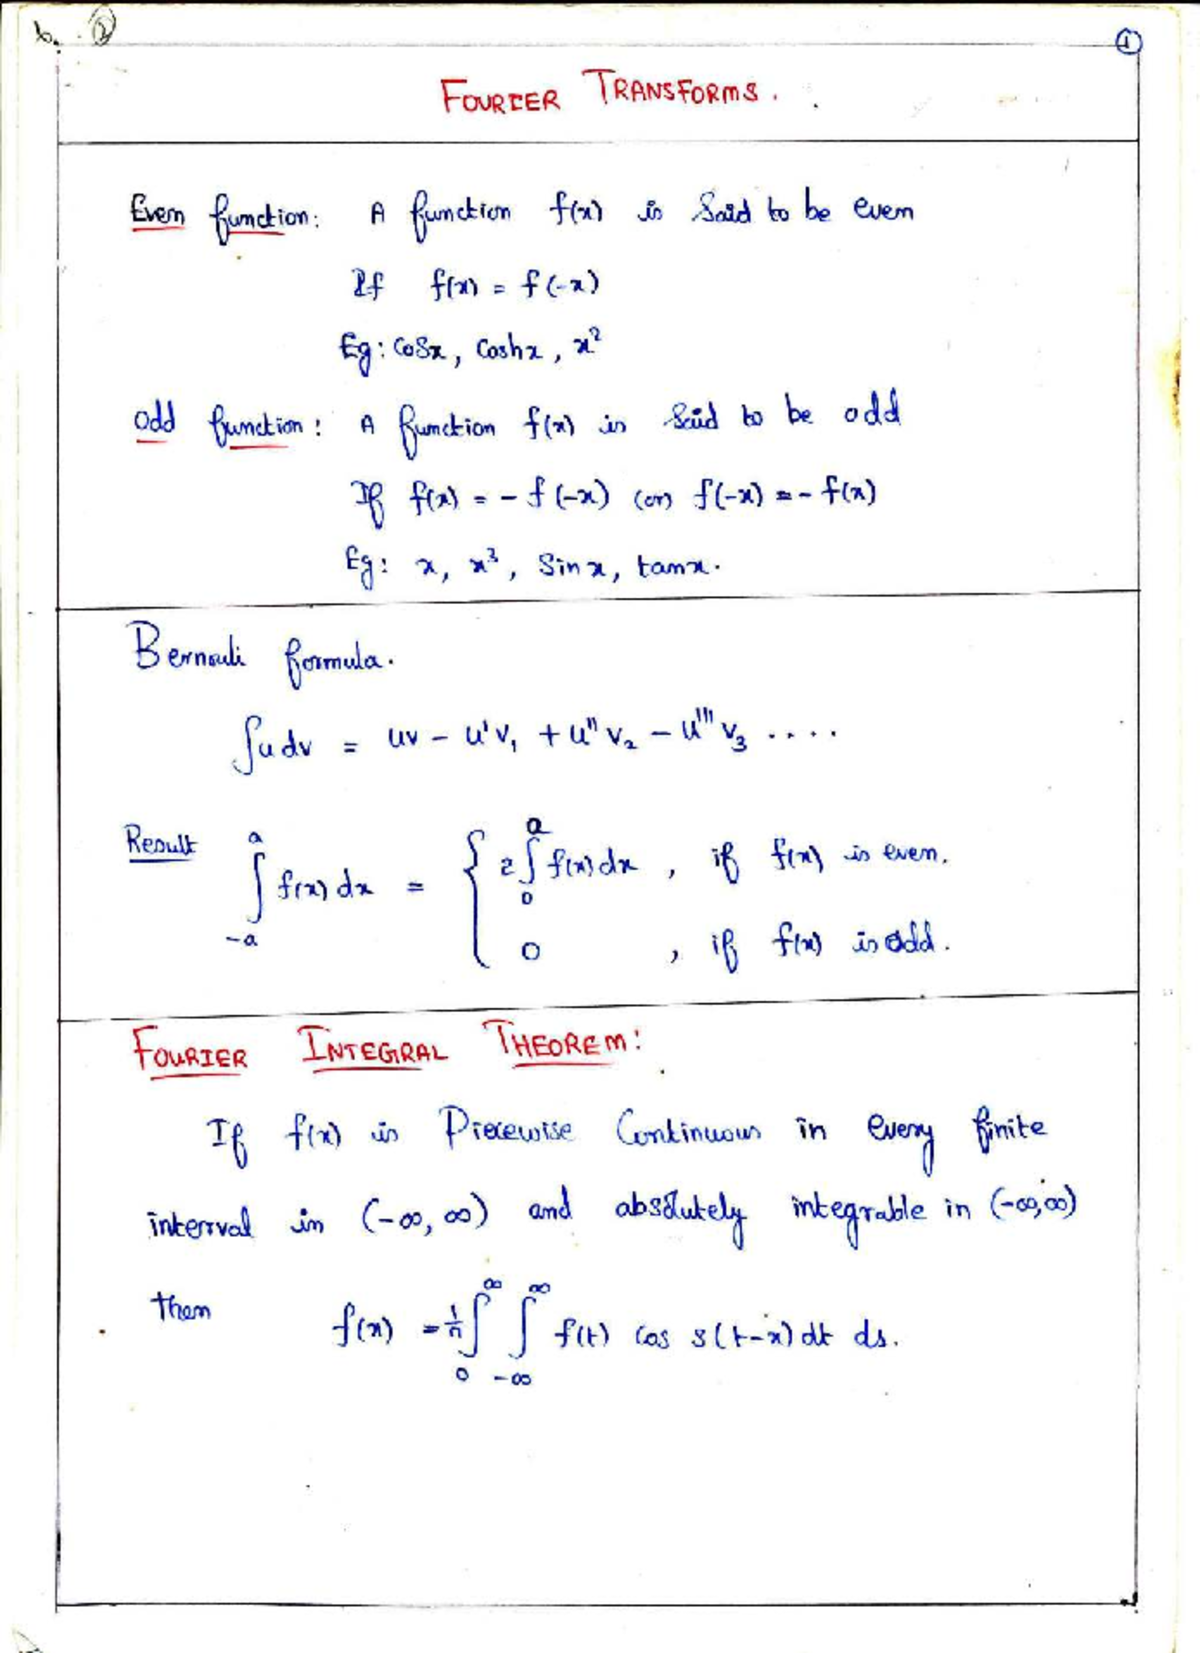 b. ②
①
FOURIER TRANSFORMS.
Even function: A function f(x) is said to be even
If f(x) = f(-x)
Eg: cosx, coshx, x²
odd function: A function f(x) is said to be odd
If f(x) = - f(-x) (or) f(-x) = - f(x)
Eg: x, x³, Sinx, tanx.
Bernouli formula.
∫u dv = uv - u'v₁ + u''v₂ - u'''v₃ ....
Result ∫_{-a}^{a} f(x) dx = { 2∫_{0}^{a} f(x) dx , if f(x) is even.
0 , if f(x) is odd.
FOURIER INTEGRAL THEOREM:
If f(x) is Piecewise Continuous in every finite
interval in (-∞, ∞) and absolutely integrable in (-∞,∞)
then f(x) = 1/π ∫_{0}^{∞} ∫_{-∞}^{∞} f(t) cos s(t-x) dt ds.